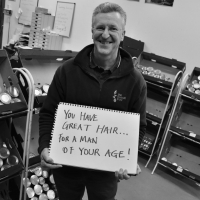 YOU HAVE
GREAT HAIR...
FOR A MAN
OF YOUR AGE!